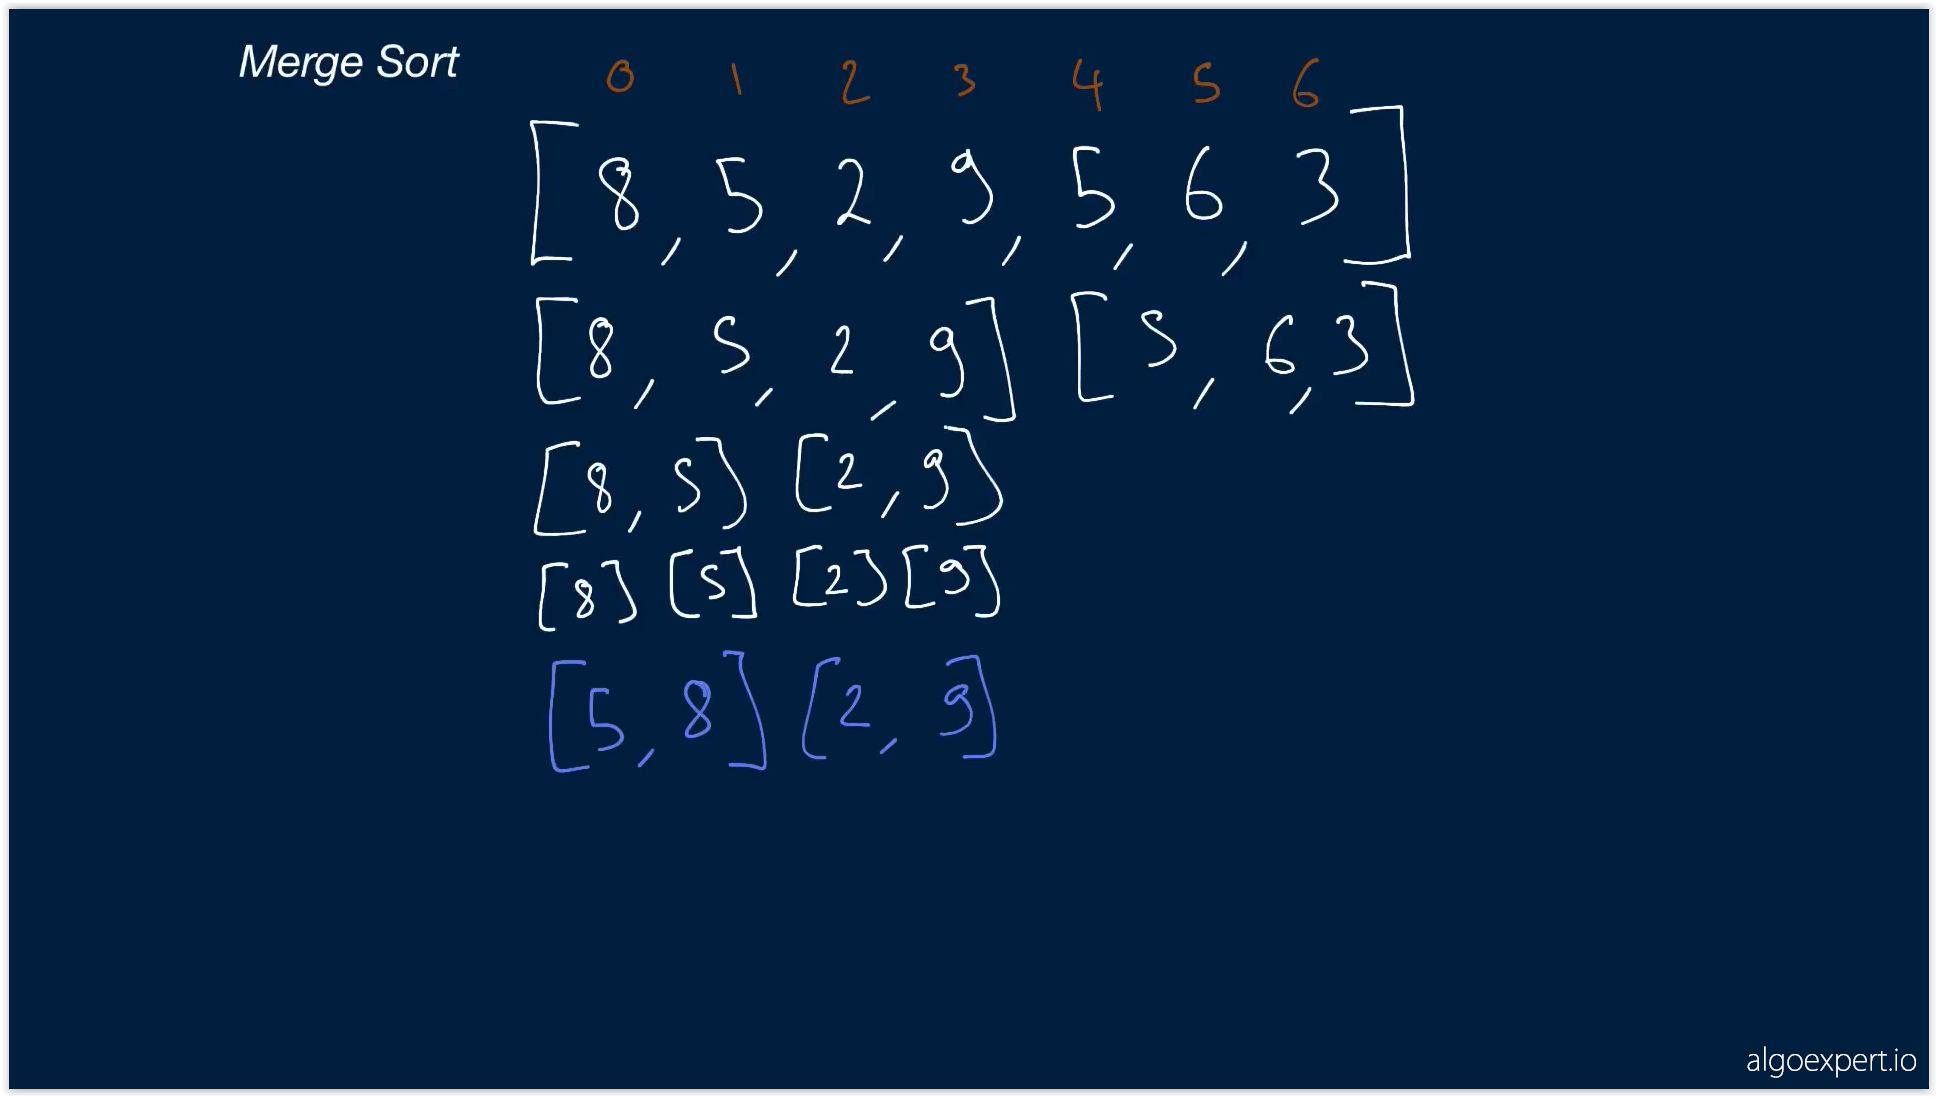 Merge Sort
0 1 2 3 4 5 6
[8, 5, 2, 9, 5, 6, 3]
[8, 5, 2, 9] [5, 6, 3]
[8, 5] [2, 9]
[8] [5] [2] [9]
[5, 8] [2, 9]
algoexpert.io